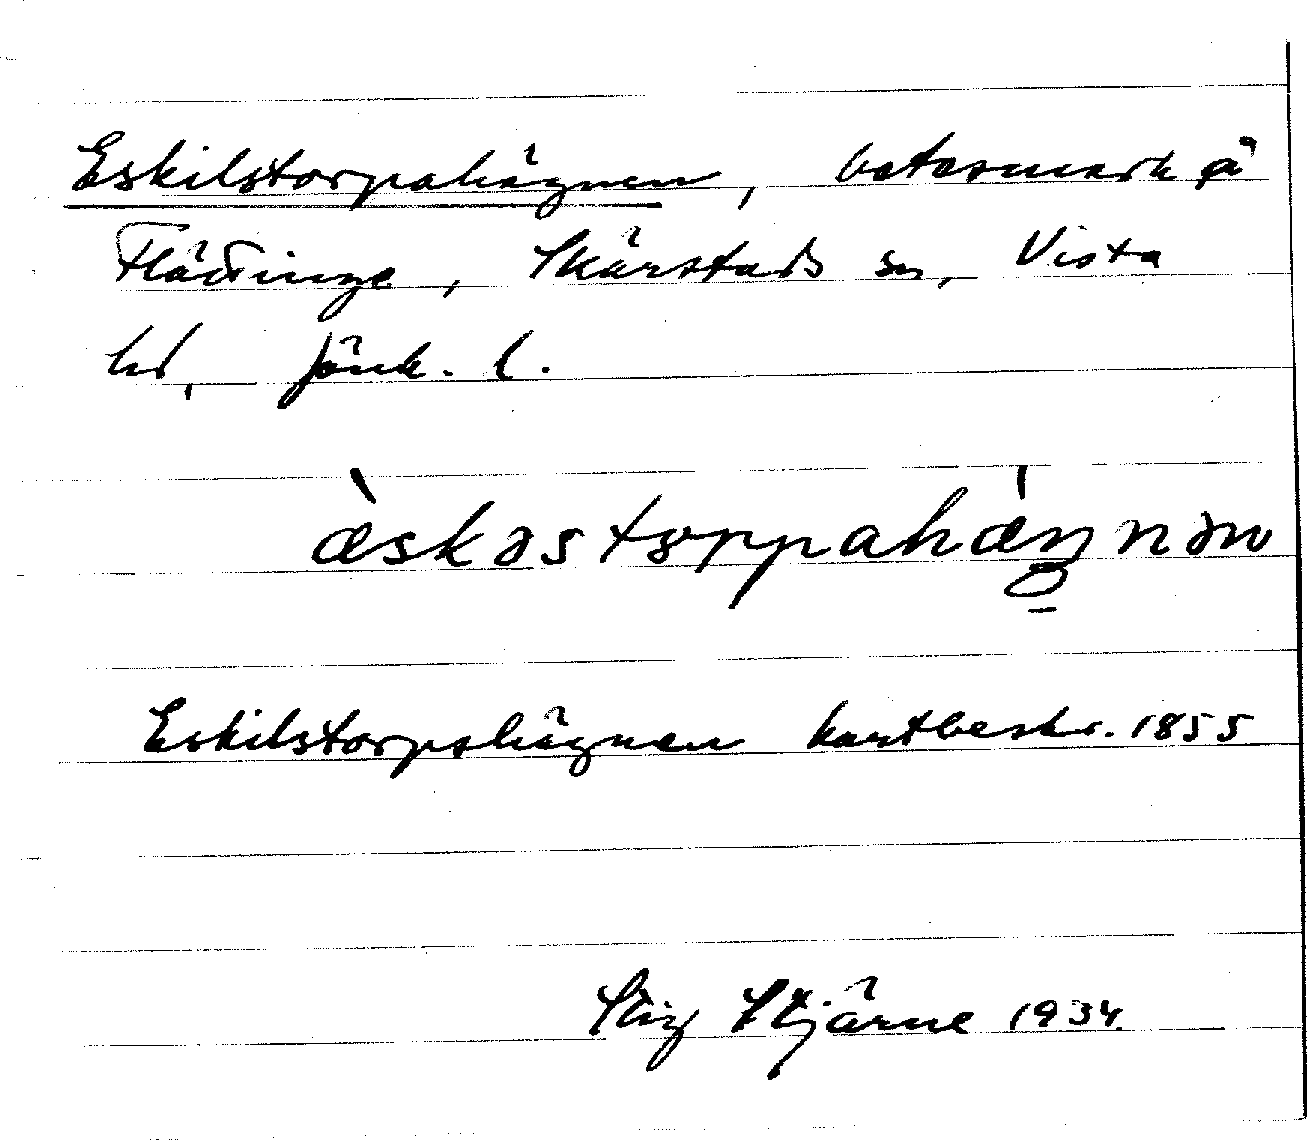 Eskilstorpahägnen, betesmark på
Flättinge, Skärstads sn, Vista
hd, Jönk. l.
æ̀skəstorpahæ̀gnən
Eskilstorpshägnen kartbeskr. 1855
Stig Stjärne 1934.